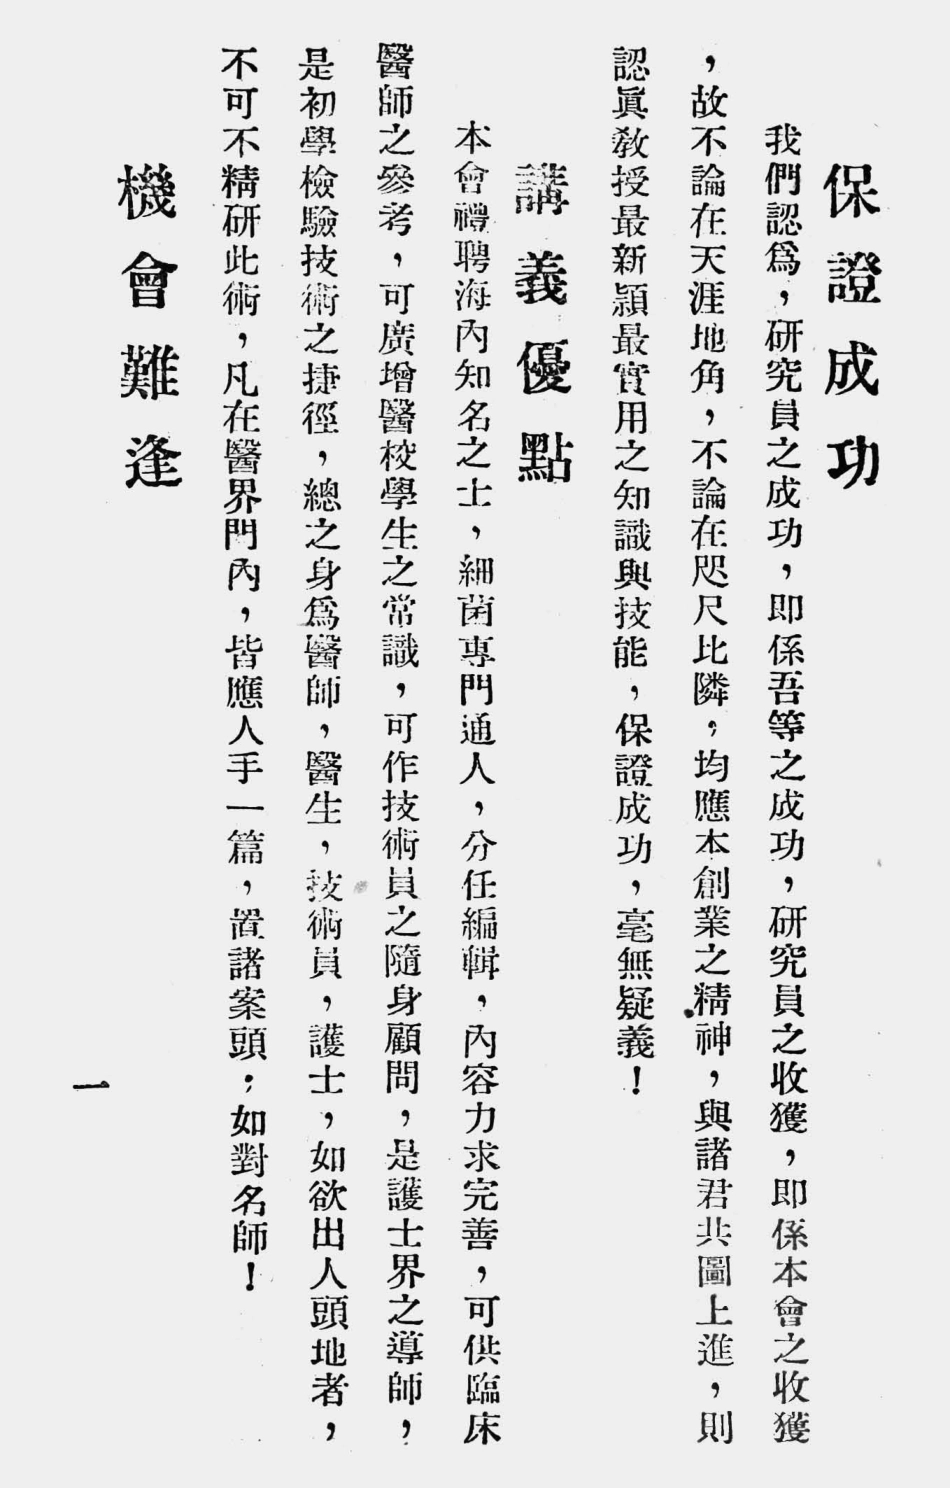 保證成功
我們認爲，研究員之成功，即係吾等之成功，研究員之收獲，即係本會之收獲
，故不論在天涯地角，不論在咫尺比隣，均應本創業之精神，與諸君共圖上進，則
認眞教授最新潁最實用之知識與技能，保證成功，毫無疑義！
講義優點
本會禮聘海內知名之士，細菌專門通人，分任編輯，內容力求完善，可供臨床
醫師之參考，可廣增醫校學生之常識，可作技術員之隨身顧問，是護士界之導師，
是初學檢驗技術之捷徑，總之身爲醫師，醫生，技術員，護士，如欲出人頭地者，
不可不精研此術，凡在醫界門內，皆應人手一篇，置諸案頭；如對名師！
機會難逢
一